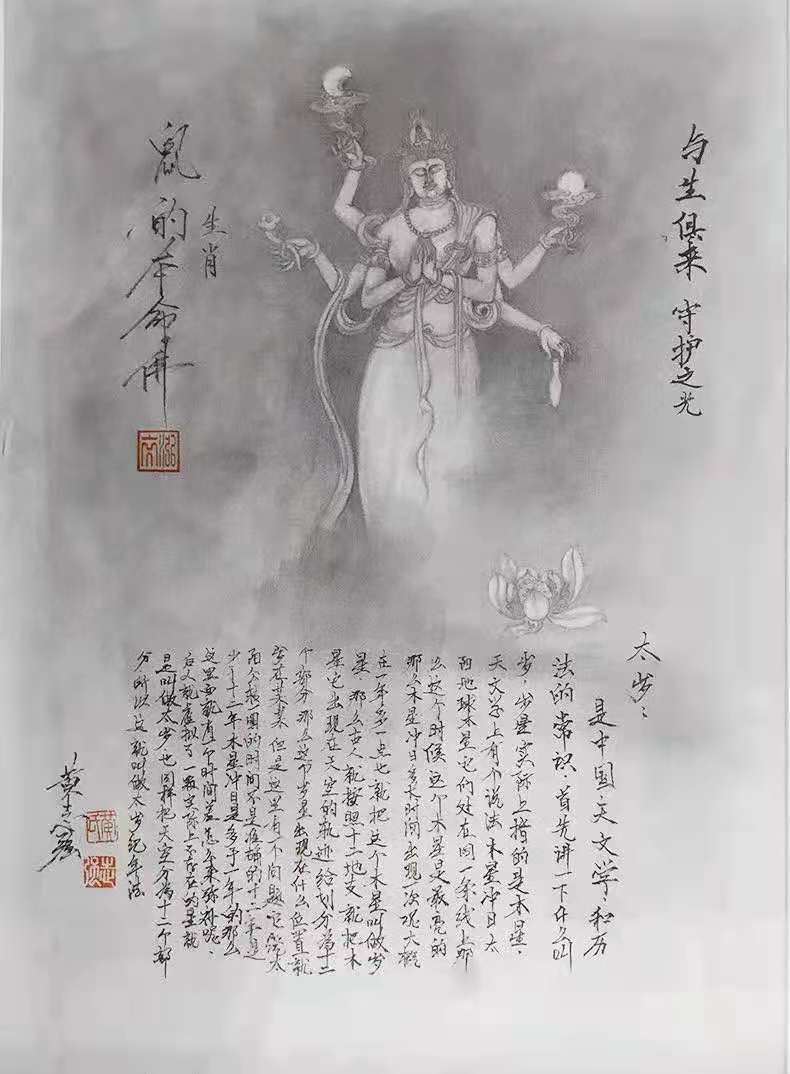 与生俱来 守护之光
生肖
鼠的本命佛
太岁：
是中国天文学和历
法的常识 首先讲一下什么叫
岁 岁星实际上指的是木星
天文学上有个说法木星冲日太
阳地球木星它们处在同一条线上那
么这个时候 这个木星是最亮的
那么木星冲日多长时间出现一次呢大概
在一年多一点也就把这个木星叫做岁
星 那么古人就按照十二地支 就把木
星它出现在天空的轨迹给划分为十二
个部分那么这个岁星出现在什么位置就
岁在某某 但是这里有个问题它绕太
阳公转周的时间不是准确的十二年是
少于十二年木星冲日是多于一年的那么
这里面就有个时间差怎么来弥补呢
古人就虚拟了一颗实际上不存在的星就
是叫做太岁也同样把天空分为十二个部
分所以这就叫做太岁纪年法